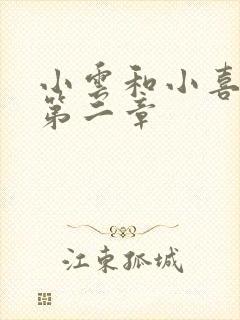 小雲和小喜
第二章
江東孤城